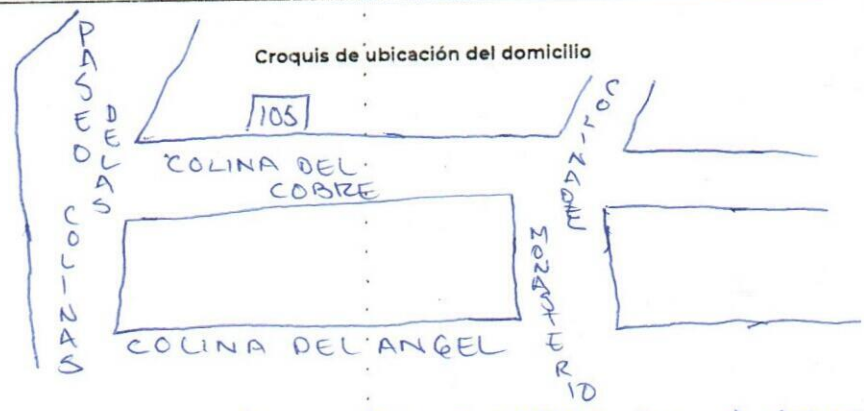 Croquis de ubicación del domicilio
PASEO
DE LAS
COLINAS
105
COLINA DEL
COBRE
COLINA DEL
MONASTERIO
COLINA DEL ANGEL